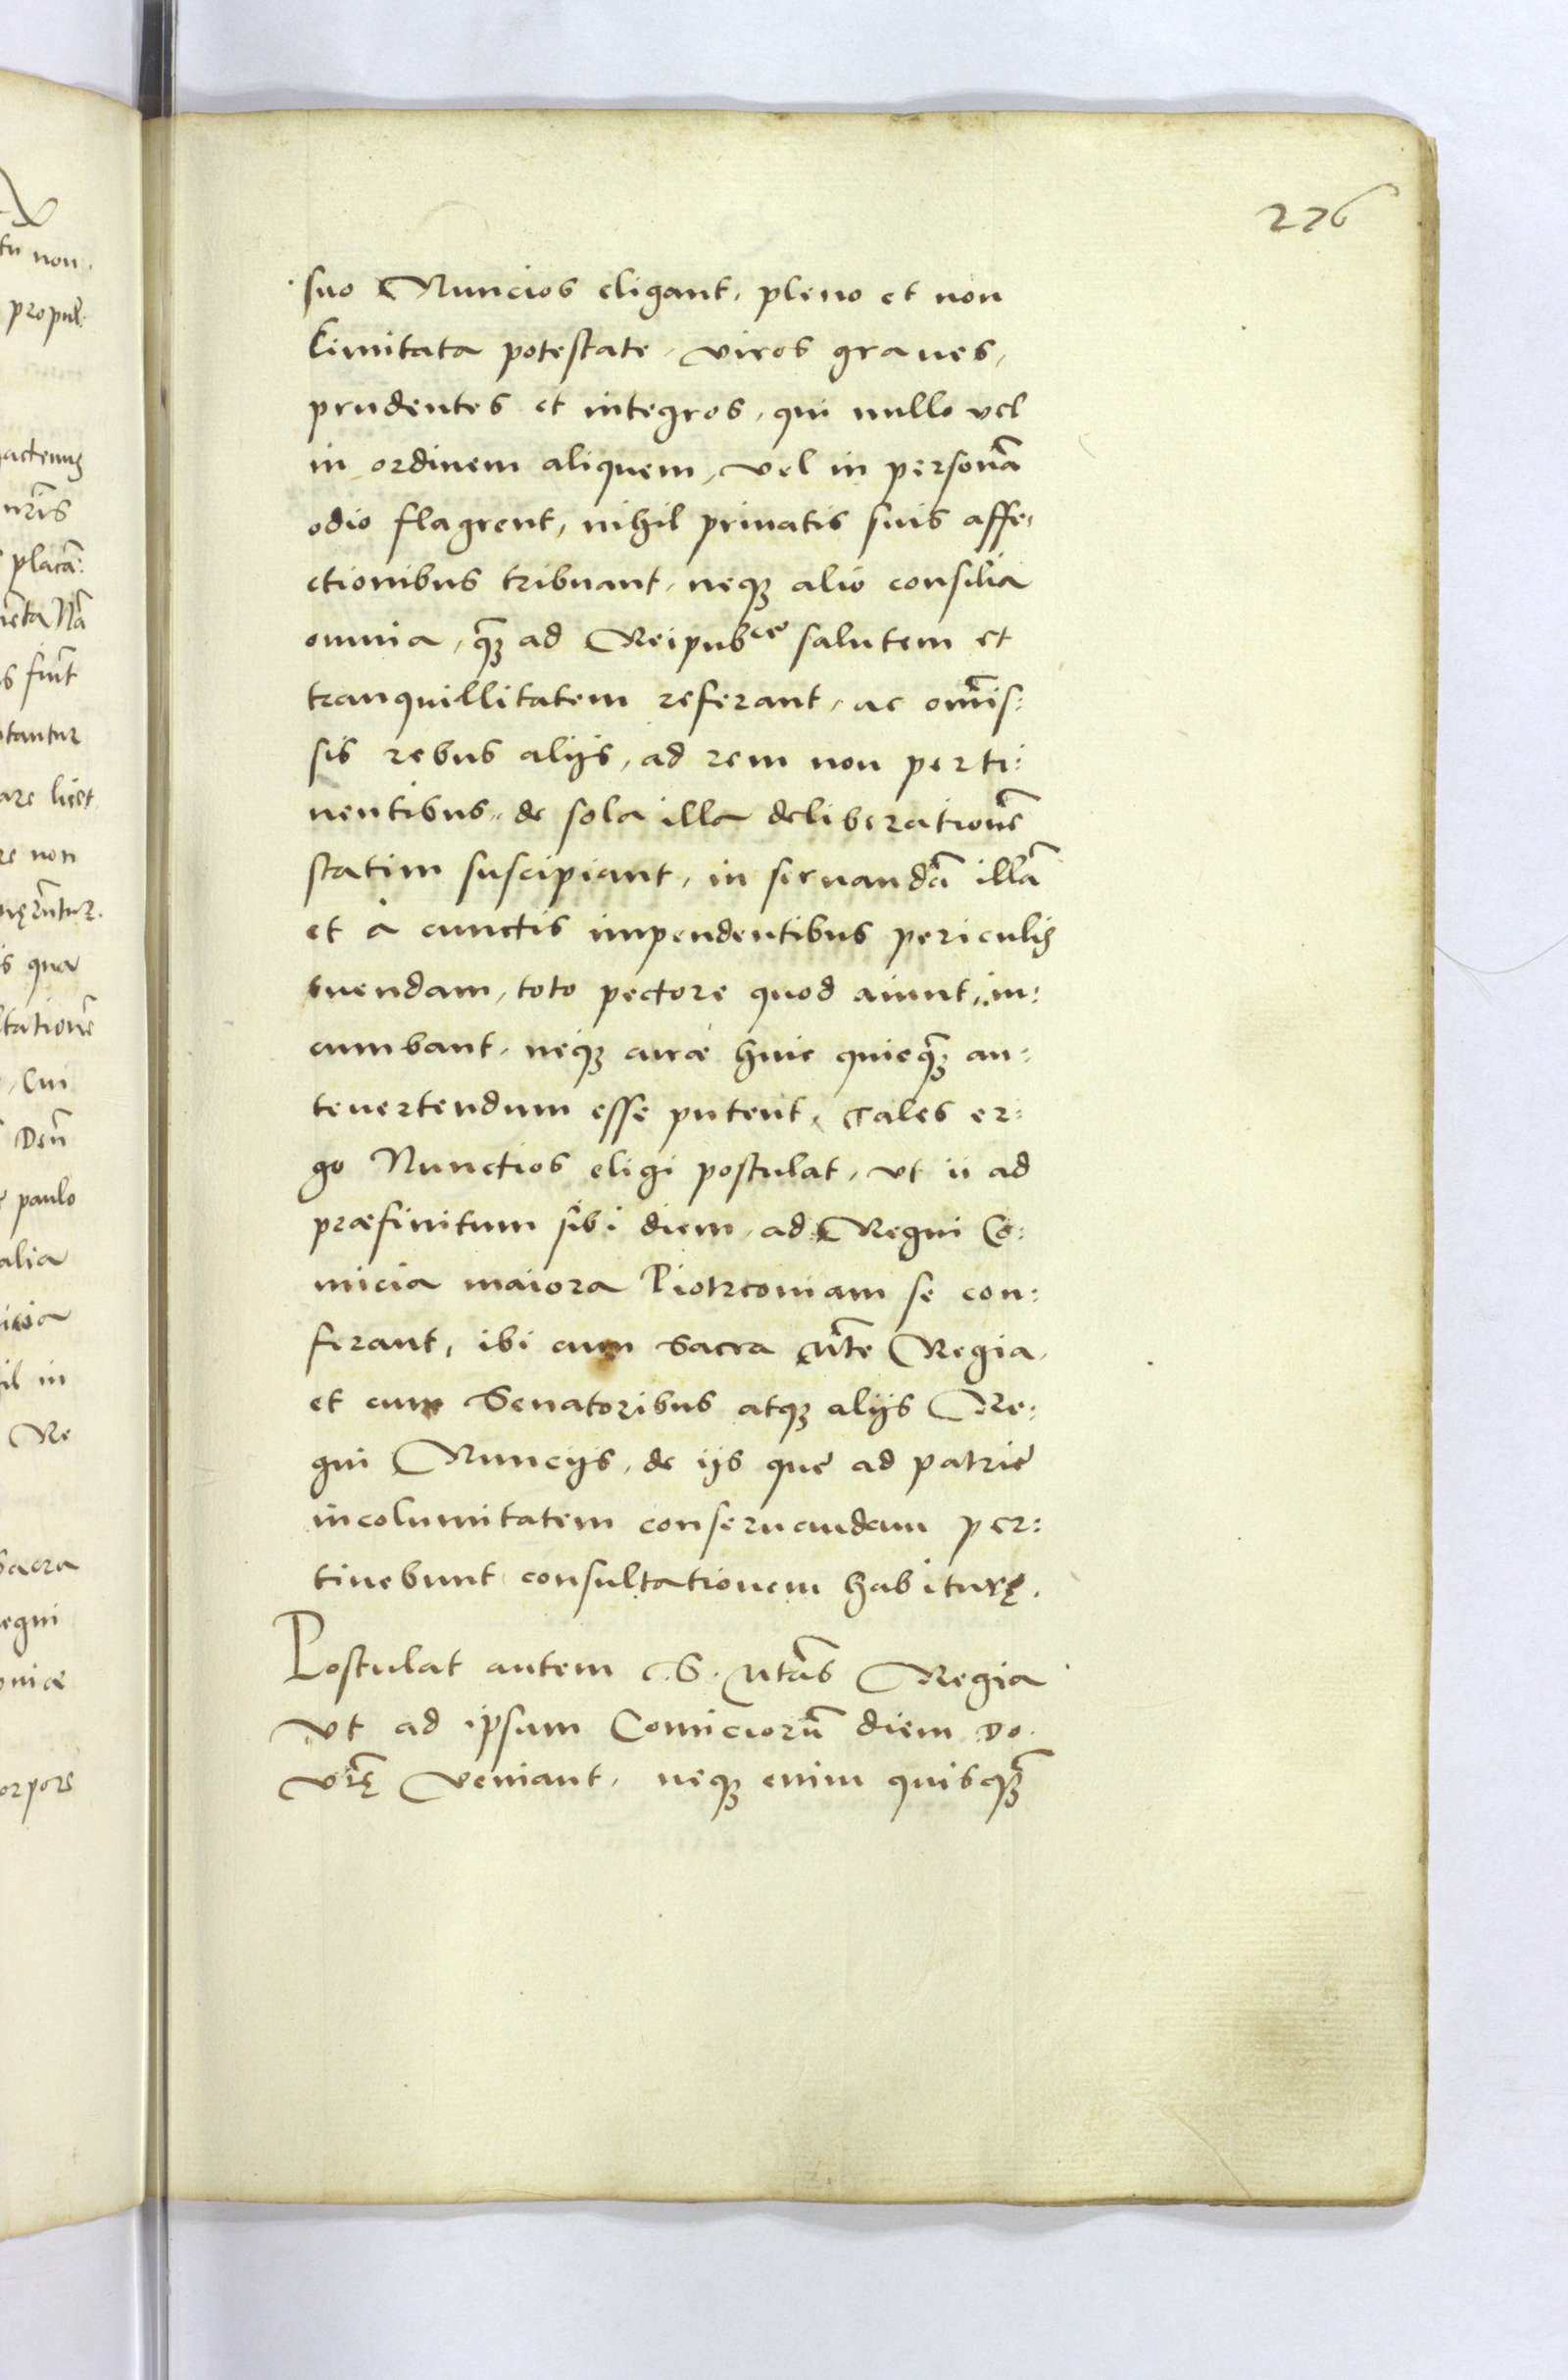 226
suo Nuncios eligant, pleno et non
limitata potestate, viros graues,
prudentes et integros, qui nullo vel
in ordinem aliquem, vel in personã
odio flagrent, nihil priuatis suis affe,
ctionibus tribuant, neqꝫ alio consilia
omnia, qꝫ̃ ad Reipubce salutem et
tranquillitatem referant, ac omis:
sis rebus alijs, ad rem non perti:
nentibus, de sola illa deliberationẽ
statim suscipiant, in seruandã illã
et à cunctis impendentibus periculis
tuendam, toto pectore quod aiunt, in:
cumbant, neqꝫ curæ huic quicqꝫ̃ an:
teuertendum esse putent, Tales er:
go Nunctios eligi postulat, vt ii ad
præfinitum sibi diem, ad Regni Co:
micia maiora Piotrcouiam se con:
ferant, ibi cum Sacra Mte Regia,
et cum Senatoribus atqꝫ alijs Re:
gni Nuncijs, de ijs que ad patrie
incolumitatem conseruandam per:
tinebunt consultationem habiturę.
Postulat autem S. Mtas Regia
vt ad ipsum Comiciorũ diem Do.
vrę veniant, neqꝫ enim quisqꝫ̃
tu non.
propul:
actenus
nris
placã:
Nã
s sint
tantur
are licet
re non
ręrũtur.
s quæ
tationẽ
, Cui
Deũ
paulo
alia
il in
Re
Sacra
egni
oniæ
orpore